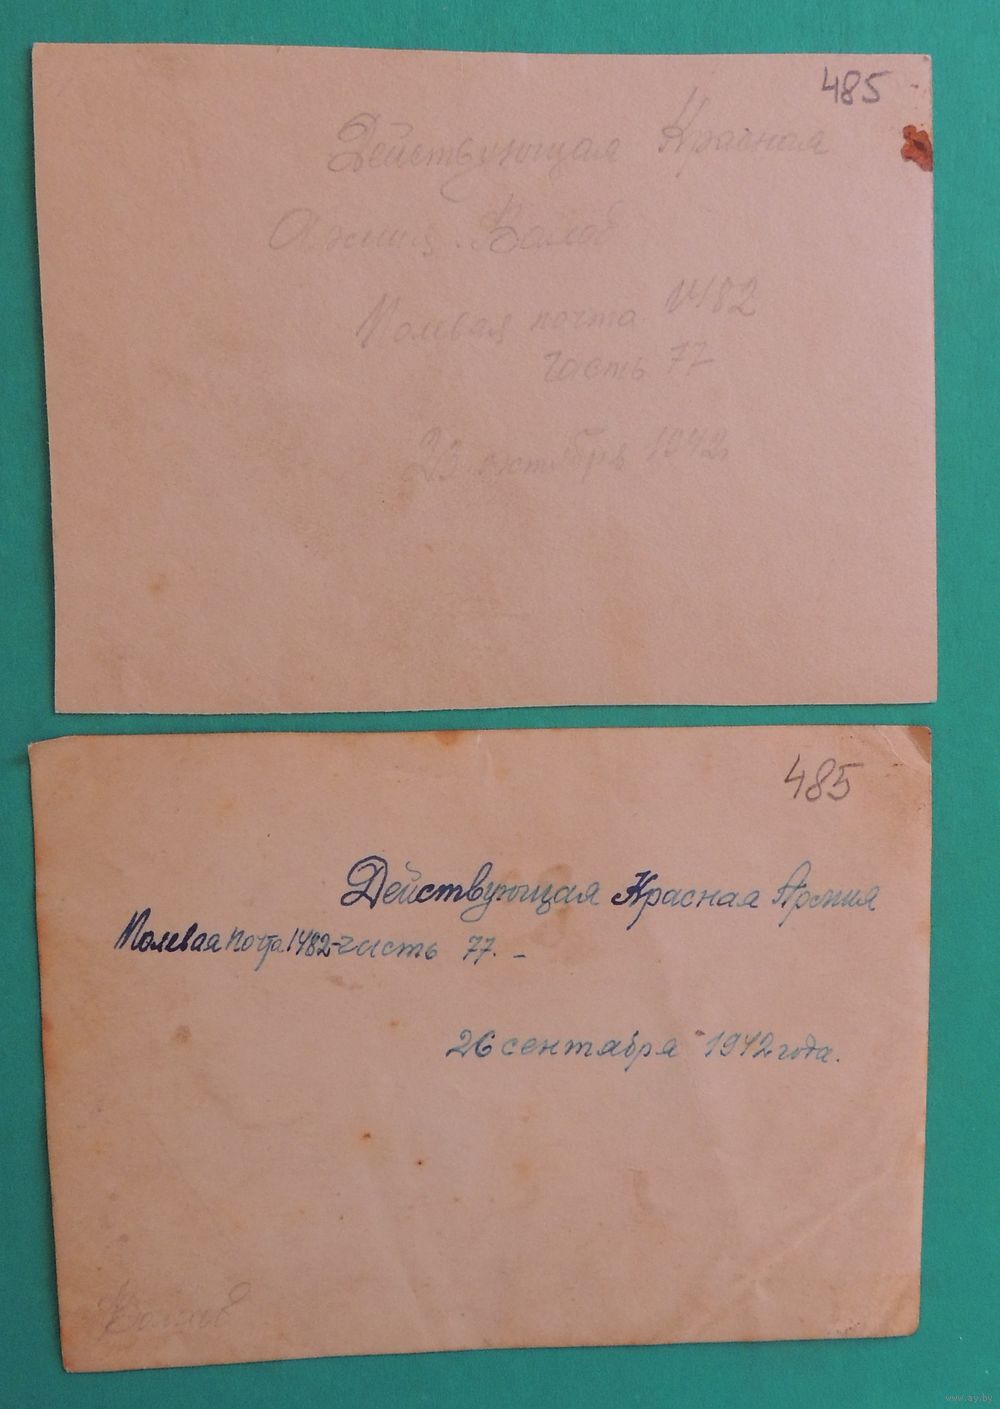 485
Действующая Красная
Армия.
Полевая почта 1482
часть 77
23 октября 1942г
485
Действующая Красная Армия
Полевая почта 1482-часть 77. –
26 сентября 1942 года.
www.ay.by